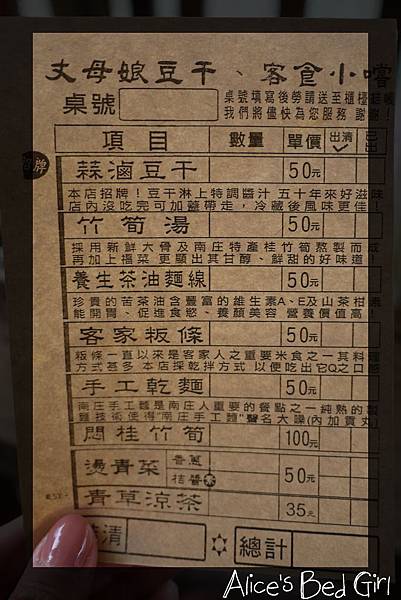 丈母娘豆干、客食小嚐
桌號
桌號填寫後勞請送至櫃檯結帳
我們將儘快為您服務 謝謝!
項目 數量 單價 出清 已出
牌
蒜滷豆干 50元
本店招牌!豆干淋上特調醬汁 五十年來好滋味
店內沒吃完可加蓋帶走,冷藏後風味更佳!
竹筍湯 50元
採用新鮮大骨及南庄特產桂竹筍熬製而成
再加上福菜 更顯出其甘醇、鮮甜的好味道!
養生茶油麵線 50元
珍貴的苦茶油含豐富的維生素A、E及山茶柑素
能開胃、促進食慾、養顏美容 營養價值高!
客家粄條 50元
粄條一直以來是客家人之重要米食之一其料理
方式甚多 本店採乾拌方式 以便吃出它Q之口感
手工乾麵 50元
南庄手工麵是南庄人重要的餐點之一純熟的製
麵技術使得"南庄手工麵"聲名大噪(內加貢丸)
悶桂竹筍 100元
燙青菜 香蔥 桔醬 50元
青草涼茶 35元
清 總計
Alice's Bed Girl